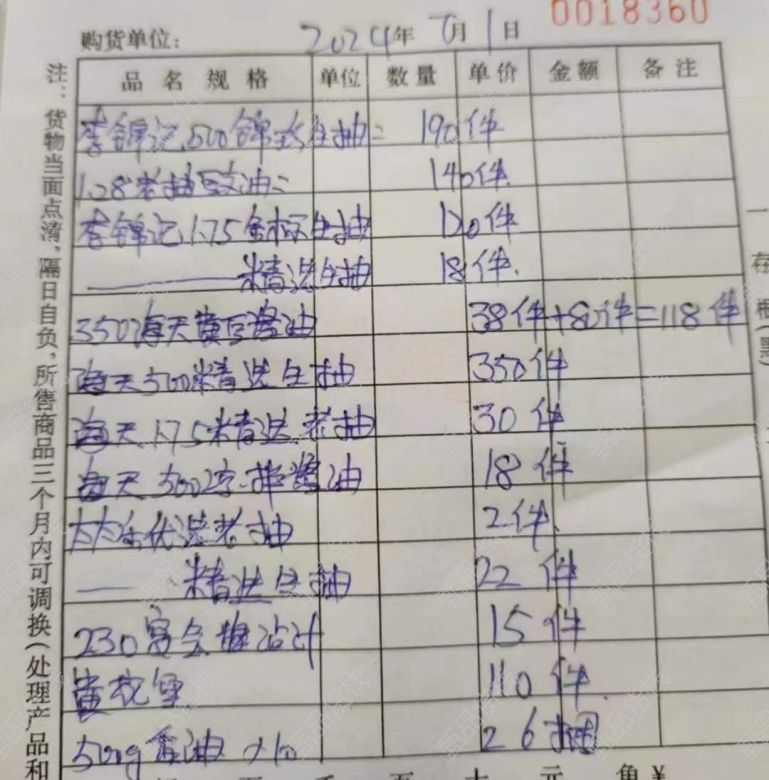 0018360
购货单位: 2024年7月1日
品名规格 单位 数量 单价 金额 备注
李锦记500锦珍生抽= 190件
1.28老抽豉油= 140件
李锦记1.75金标生抽 120件
—— 精选生抽 18件.
3502海天黄豆酱油 38件+80件=118件
海天500精选生抽 350件
海天1.75精选老抽 30件
海天500 酱油 18件
优选老抽 2件
— 精选生抽 22件
230 15件
110件
500g 油 ×10 26捆
注:货物当面点清,隔日自负,所售商品三个月内可调换(处理产品和
一存根(黑)
百 十 元 角 ¥